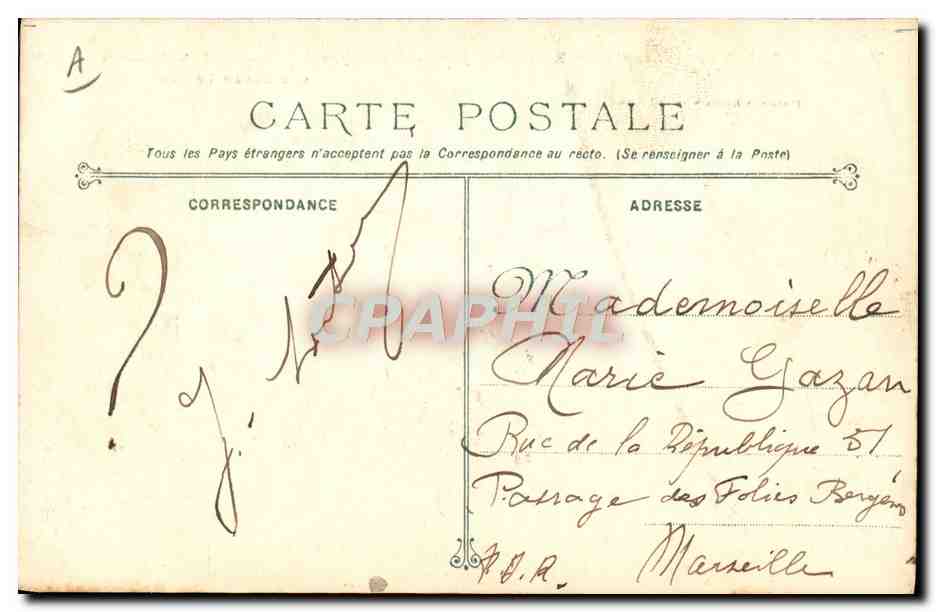 A
CARTE POSTALE
Tous les Pays étrangers n'acceptent pas la Correspondance au recto. (Se renseigner à la Poste)
CORRESPONDANCE
?
J.
ADRESSE
Mademoiselle
Marie Gazan
Rue de la République 51
Passage des Folies Bergères
Marseille
CPAPHIL